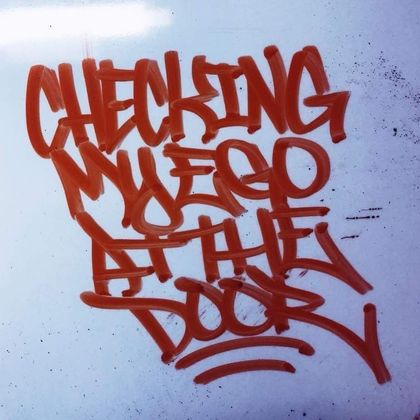 CHECKING
MY EGO
AT THE
DOOR